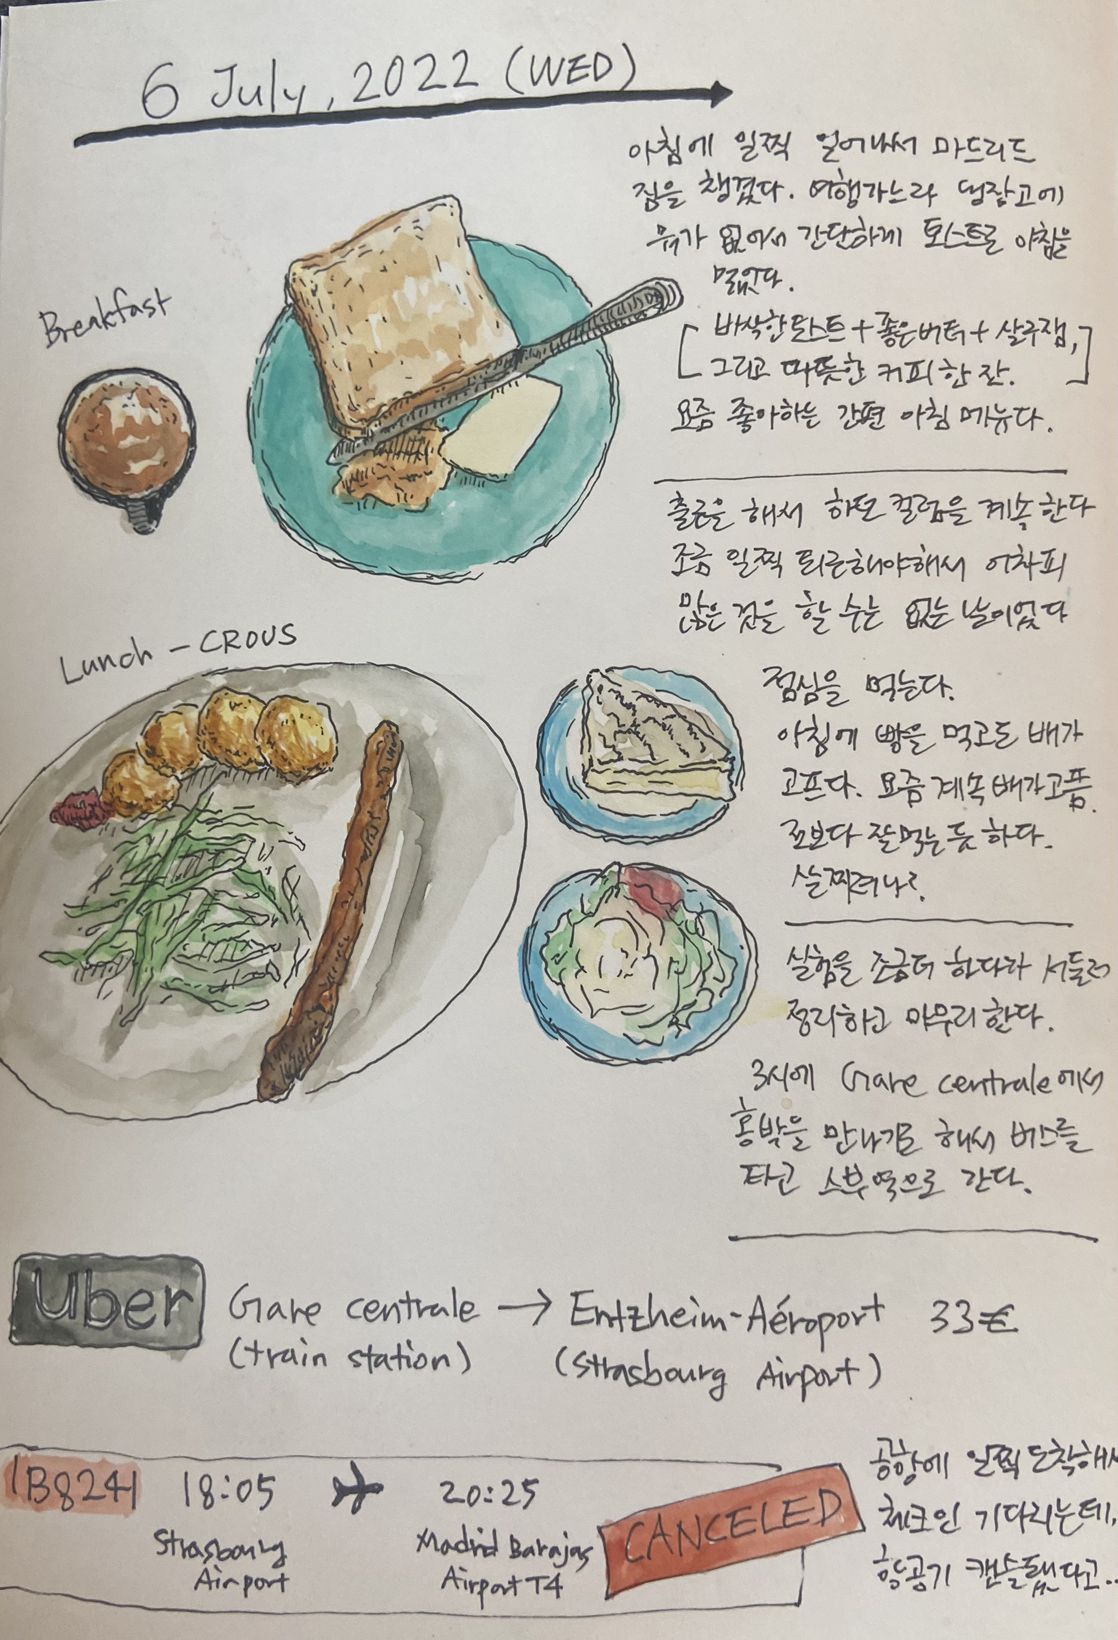 6 July, 2022 (WED)
아침에 일찍 일어나서 마드리드
짐을 챙겼다. 여행가느라 냉장고에
뭐가 없어서 간단하게 토스트로 아침을
먹었다.
Breakfast
[ 바삭한 토스트 + 좋은버터 + 살구잼,
그리고 따뜻한 커피 한 잔. ]
요즘 좋아하는 간편 아침 메뉴다.
출근을 해서 하던 컬럼을 계속 한다
조금 일찍 퇴근해야해서 어차피
많은 것을 할 수는 없는 날이었다
Lunch - CROUS
점심을 먹는다.
아침에 빵을 먹고도 배가
고프다. 요즘 계속 배가고픔.
보다 잘먹는 듯 하다.
살찌려나?
실험을 조금더 하다가 서둘러
정리하고 마무리 한다.
3시에 Gare centrale에서
홍박을 만나기로 해서 버스를
타고 스부역으로 간다.
Uber
Gare centrale → Entzheim-Aéroport 33€
(train station) (Strasbourg Airport)
IB8241 18:05 20:25
Strasbourg Airport
Madrid Barajas Airport T4
CANCELED
공항에 일찍 도착해서
체크인 기다리는데,
항공기 캔슬됐다고..